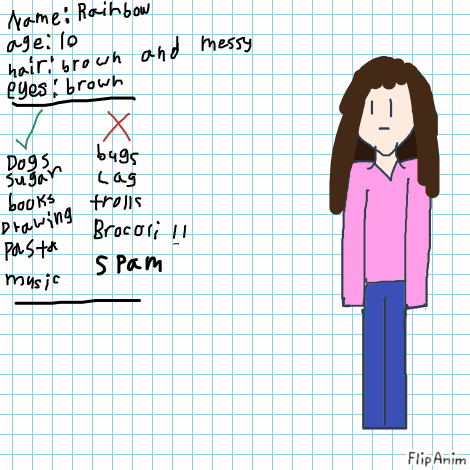 Name: Rainbow
age: 10
hair: brown and messy
eyes: brown
Dogs
sugar
books
Drawing
Pasta
music
bugs
Lag
trolls
Brocori !!
Spam
FlipAnim